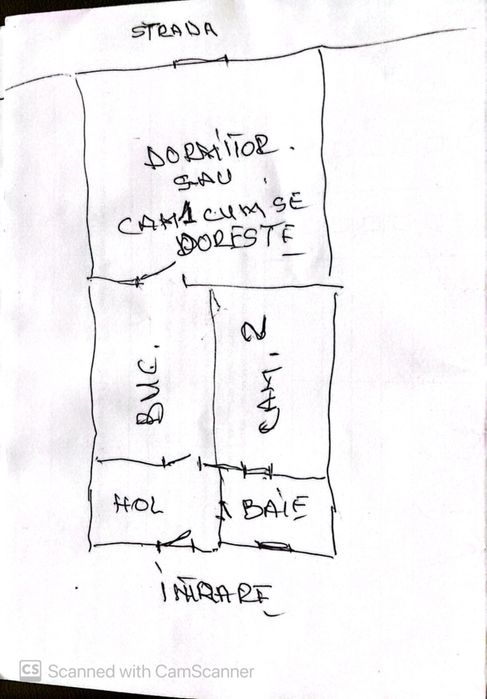 STRADA
DORMITOR.
SAU
CAM1 CUM SE
DOREȘTE
BUC.
CAM. 2
HOL
BAIE
INTRARE
CS Scanned with CamScanner